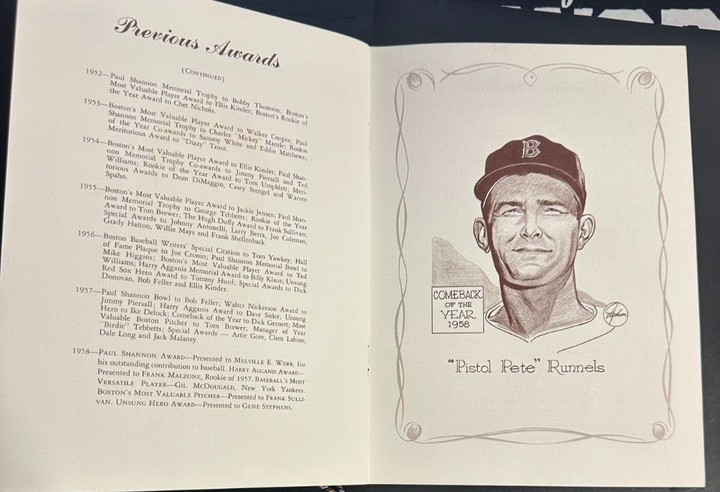 Previous Awards
(CONTINUED)
1952—Paul Shannon Memorial Trophy to Bobby Thomson; Boston's
Most Valuable Player Award to Ellis Kinder; Boston's Rookie of
the Year Award to Chet Nichols.
1953—Boston's Most Valuable Player Award to Walker Cooper; Paul
Shannon Memorial Trophy to Charles "Mickey" Mantle; Rookie
of the Year Co-awards to Sammy White and Eddie Matthews;
Meritorious Award to "Dizzy" Trout.
1954—Boston's Most Valuable Player Award to Ellis Kinder; Paul Shan-
non Memorial Trophy Co-awards to Jimmy Piersall and Ted
Williams; Rookie of the Year Award to Tom Umphlett; Meri-
torious Awards to Dom DiMaggio, Casey Stengel and Warren
Spahn.
1955—Boston's Most Valuable Player Award to Jackie Jensen; Paul Shan-
non Memorial Trophy to George Tebbetts; Rookie of the Year
Award to Tom Brewer; The Hugh Duffy Award to Frank Sullivan;
Special Awards to Johnny Antonelli, Larry Berra, Joe Coleman,
Grady Hatton, Willie Mays and Frank Shellenback.
1956—Boston Baseball Writers' Special Citation to Tom Yawkey; Hall
of Fame Plaque to Joe Cronin; Paul Shannon Memorial Bowl to
Mike Higgins; Boston's Most Valuable Player Award to Ted
Williams; Harry Agganis Memorial Award to Billy Klaus; Unsung
Red Sox Hero Award to Tommy Hurd; Special Awards to Dick
Donovan, Bob Feller and Ellis Kinder.
1957—Paul Shannon Bowl to Bob Feller; Walter Nickerson Award to
Jimmy Piersall; Harry Agganis Award to Dave Sisler; Unsung
Hero to Ike Delock; Comeback of the Year to Dick Gernert; Most
Valuable Boston Pitcher to Tom Brewer; Manager of Year
"Birdie" Tebbetts; Special Awards — Artie Gore, Clem Labine,
Dale Long and Jack Malaney.
1958—PAUL SHANNON AWARD—Presented to MELVILLE E. WEBB, for
his outstanding contribution to baseball. HARRY AGGANIS AWARD—
Presented to FRANK MALZONE, Rookie of 1957. BASEBALL'S MOST
VERSATILE PLAYER—GIL MCDOUGALD, New York Yankees.
BOSTON'S MOST VALUABLE PITCHER—Presented to FRANK SULLI-
VAN. UNSUNG HERO AWARD—Presented to GENE STEPHENS.
B
COMEBACK
OF THE
YEAR
1958
"Pistol Pete" Runnels